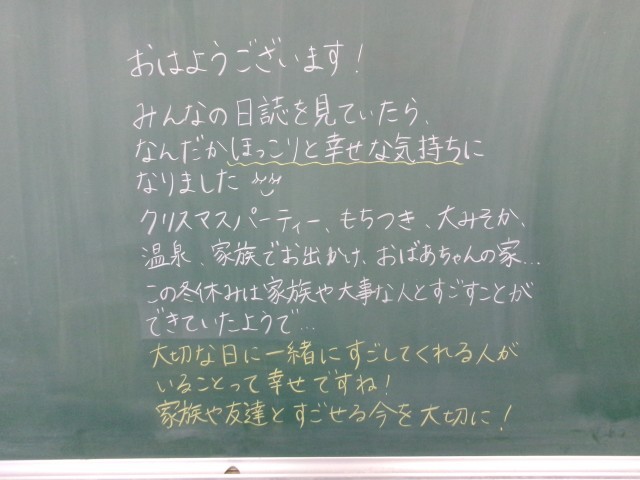 おはようございます!
みんなの日誌を見ていたら、
なんだかほっこりと幸せな気持ちに
なりました
クリスマスパーティー、もちつき、大みそか、
温泉、家族でお出かけ、おばあちゃんの家…
この冬休みは家族や大事な人とすごすことが
できていたようで…
大切な日に一緒にすごしてくれる人が
いることって幸せですね!
家族や友達とすごせる今を大切に!